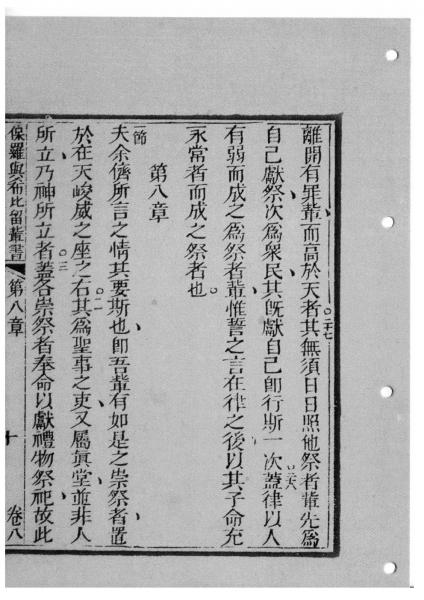 離開有罪輩而高於天者其無須日日照他祭者輩先爲
二十七
自己獻祭次爲衆民其既獻自己卽行斯一次蓋律以人
二十八
有弱而成之爲祭者輩惟誓之言在律之後以其子命充
永常者而成之祭者也
第八章
一節
夫余儕所言之情其要斯也卽吾輩有如是之崇祭者置
於在天峻威之座之右其爲聖事之吏又屬眞堂並非人
二
所立乃神所立者蓋各崇祭者奉命以獻禮物祭祀故此
三
保羅與希比留輩書
第八章
十
卷八